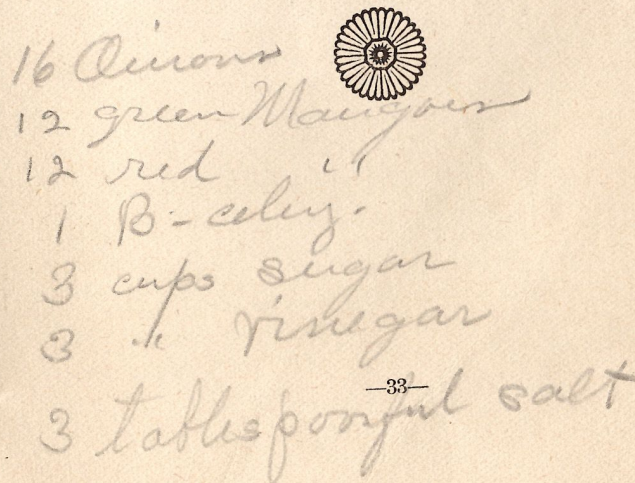 16 Onions
12 green Mangoes
12 red "
1 B-celery.
3 cups sugar
3 " vinegar
—33—
3 tablespoonful salt